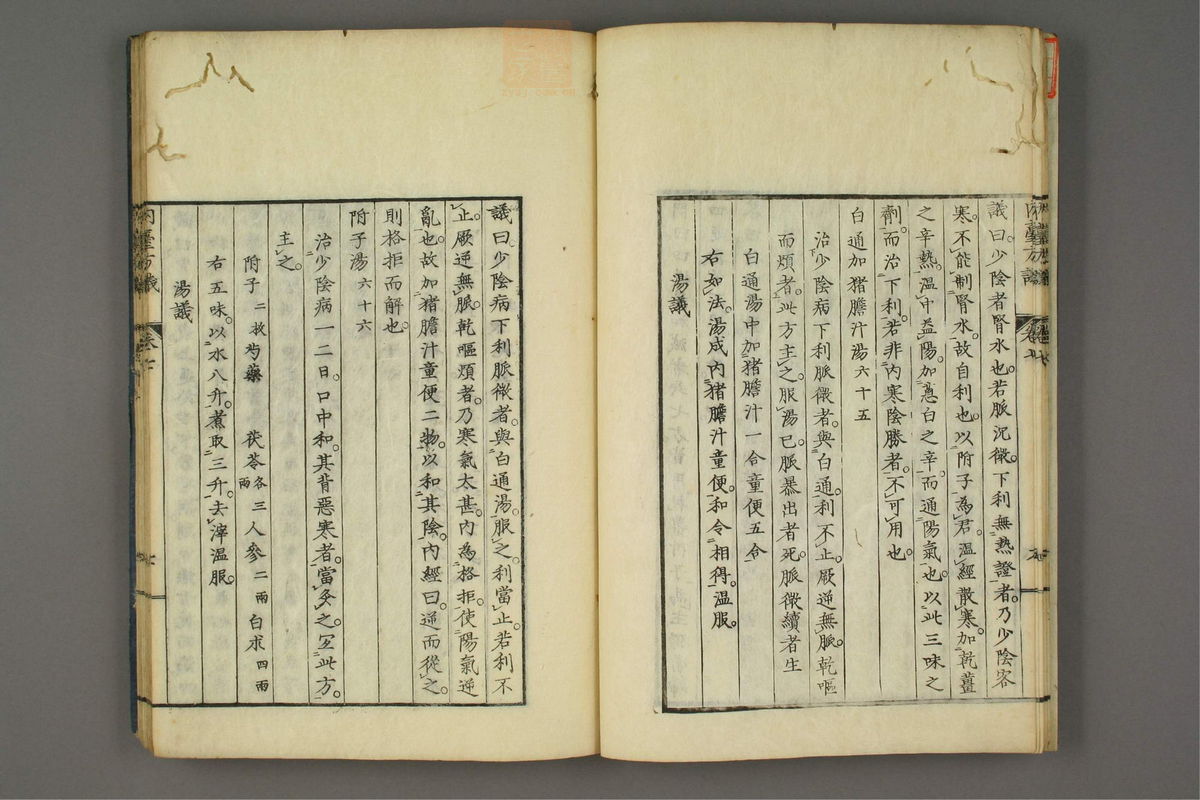 議曰少陰者腎水也。若脈沉微。下利無熱證者。乃少陰客
寒。不能制腎水。故自利也。以附子為君。温經散寒。加乾薑
之辛熱。温中益陽。加葱白之辛。而通陽氣也。以此三味之
劑。而治下利。若非内寒陰勝者。不可用也。
白通加猪膽汁湯六十五
治少陰病下利脈微者。與白通。利不止。厥逆無脈。乾嘔
而煩者。此方主之。服湯已。脈暴出者死。脈微續者生
白通湯中加猪膽汁一合童便五合
右如法。湯成内猪膽汁童便。和令相得。温服。
湯議
議曰。少陰病下利脈微者。與白通湯。服之。利當止。若利不
止。厥逆無脈。乾嘔煩者。乃寒氣太甚。内為格拒。使陽氣逆
亂也。故加猪膽汁童便二物。以和其陰。内經曰。逆而從之。
則格拒而解也。
附子湯六十六
治少陰病一二日。口中和。其背惡寒者。當灸之。宜此方。
主之。
附子二枚 芍藥 茯苓各三兩 人參二兩 白朮四兩
右五味。以水八升。煮取三升。去滓温服。
湯議
卷七